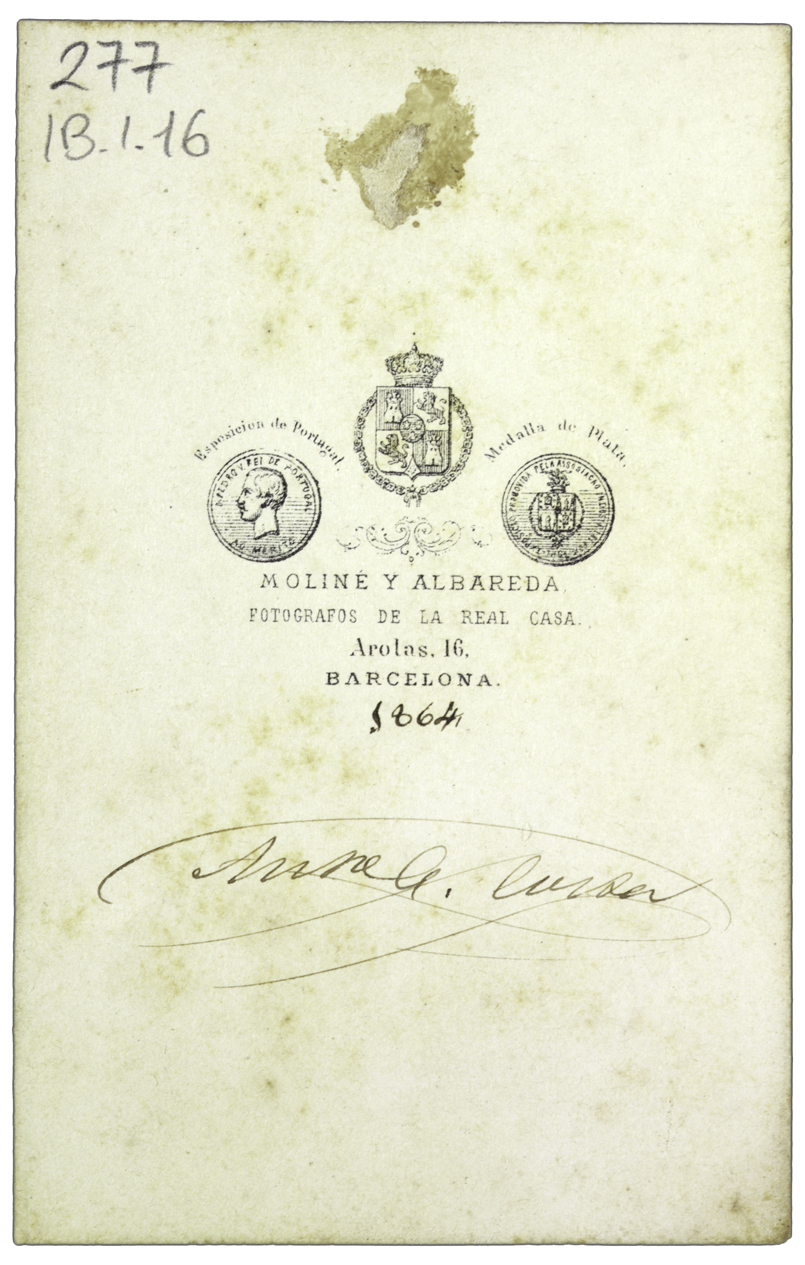 277
1B.1.16
Esposicion de Portugal.
Medalla de Plata.
PEDRO V REI DE PORTUGAL
AO MERITO
PROMOVIDA PELA ASSOCIAÇÃO
MOLINÉ Y ALBAREDA
FOTOGRAFOS DE LA REAL CASA.
Arolas, 16,
BARCELONA.
1864